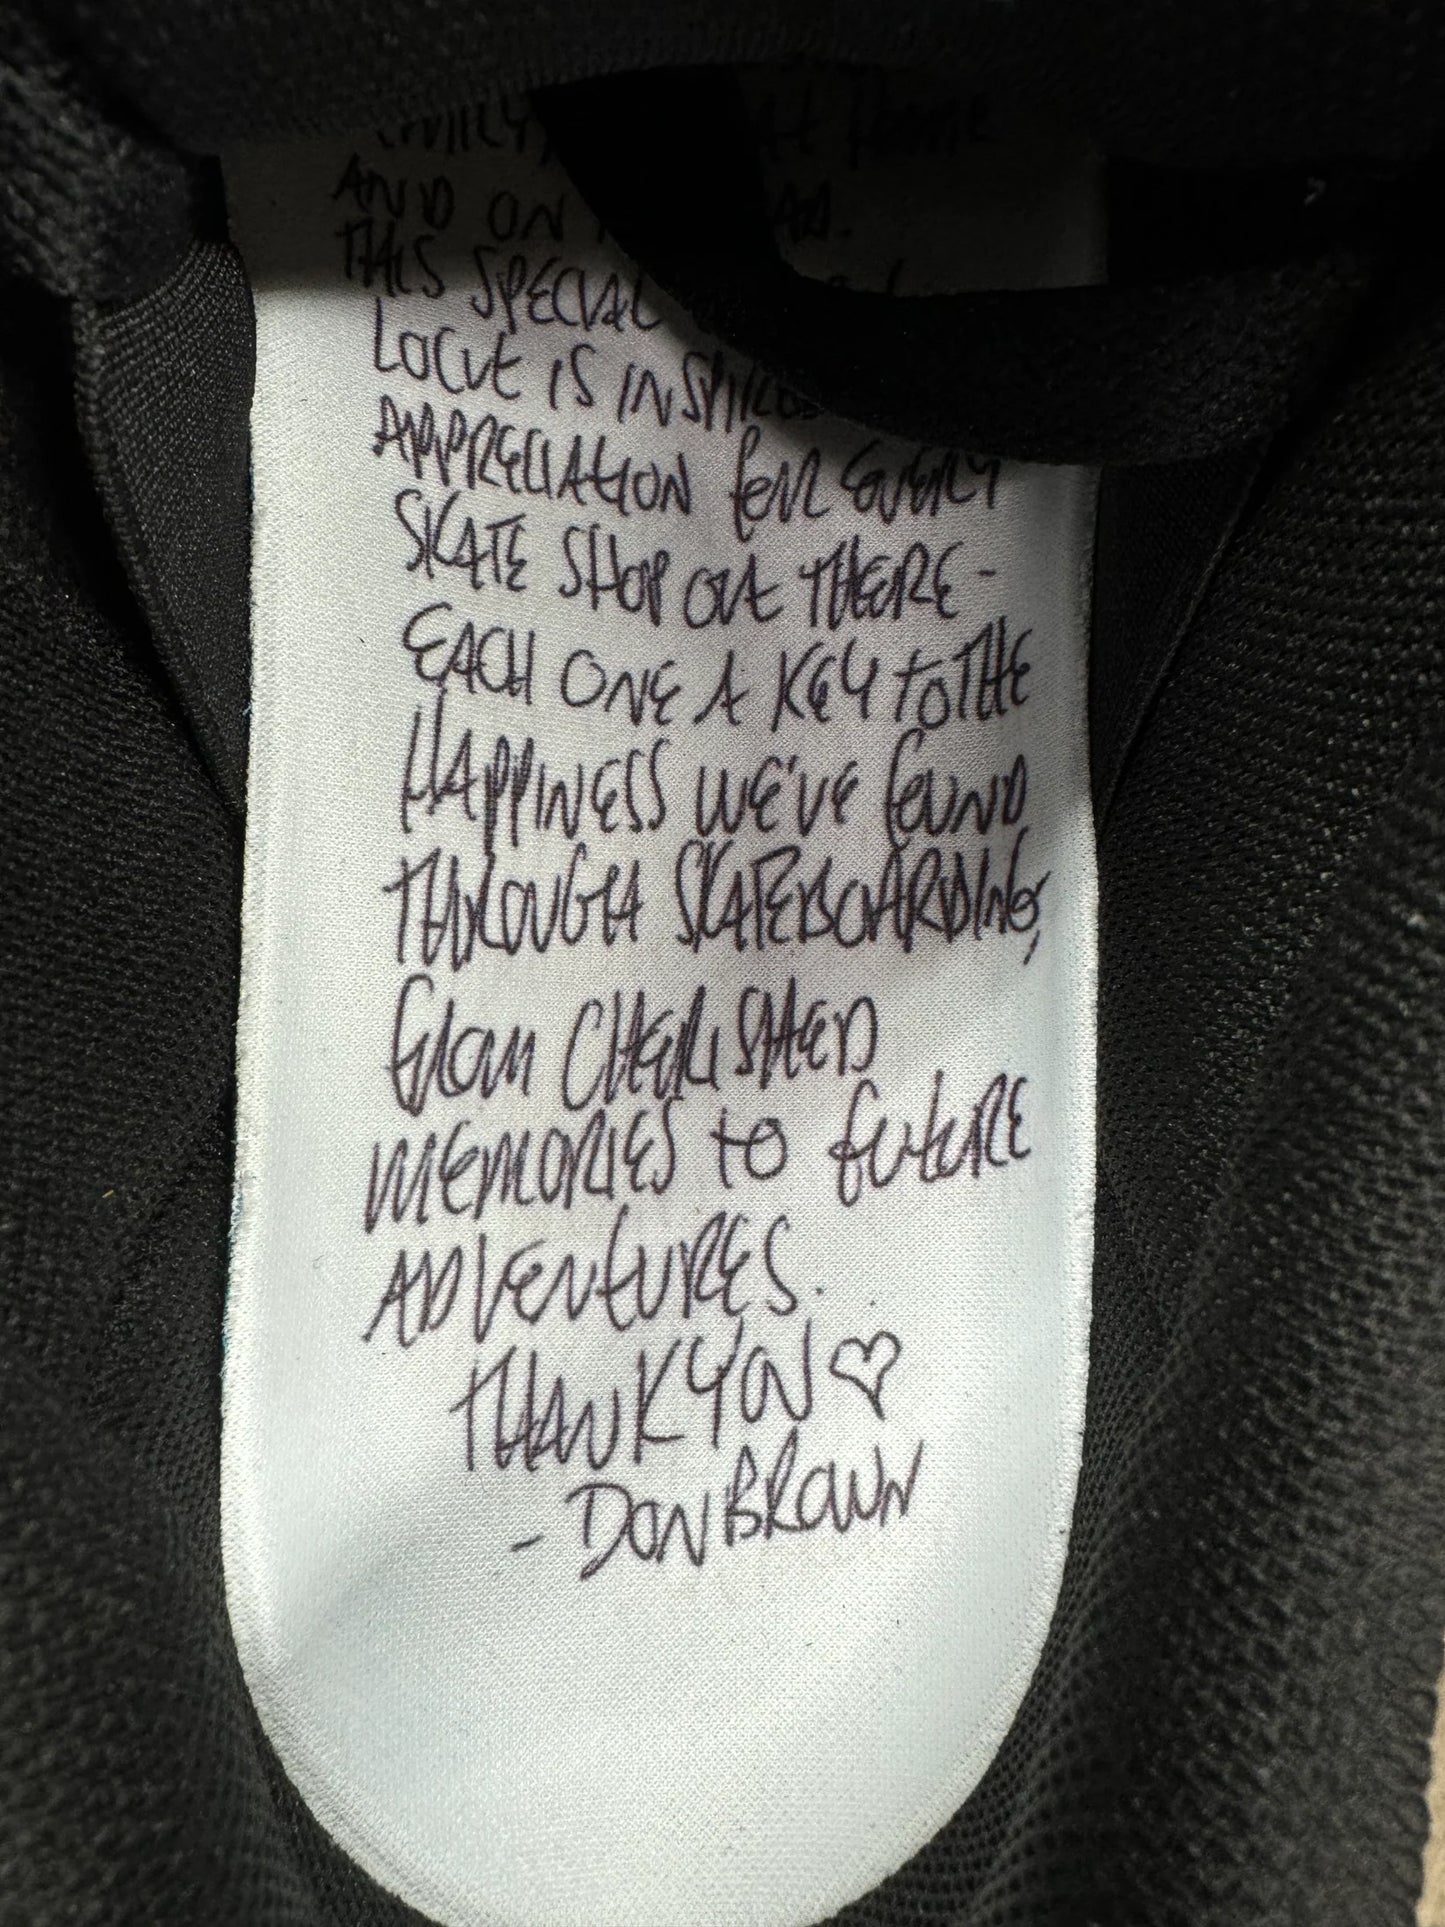 FAMILY AT HOME
AND ON AD.
THIS SPECIAL
LOCUE IS INSPIRED
APPRECIATION FOR EVERY
SKATE SHOP OUT THERE-
EACH ONE A KEY TO THE
HAPPINESS WE'VE FOUND
THROUGH SKATEBOARDING,
FROM CHERISHED
MEMORIES TO FUTURE
ADVENTURES.
THANK YOU ♡
- DON BROWN